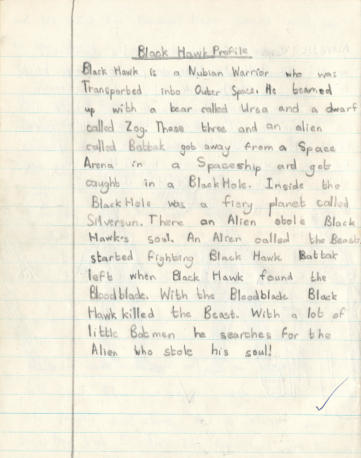 Black Hawk Profile
Black Hawk is a Nubian Warrior who was
Transported into Outer Space. He teamed
up with a bear called Ursa and a dwarf
called Zog. These three and an alien
called Battak got away from a Space
Arena in a Spaceship and got
caught in a Black Hole. Inside the
Black Hole was a fiery planet called
Silversun. There an Alien stole Black
Hawk's soul. An Alien called the Beast
started fighting Black Hawk Battak
left when Black Hawk found the
Bloodblade. With the Bloodblade Black
Hawk killed the Beast. With a lot of
little Batmen he searches for the
Alien who stole his soul!